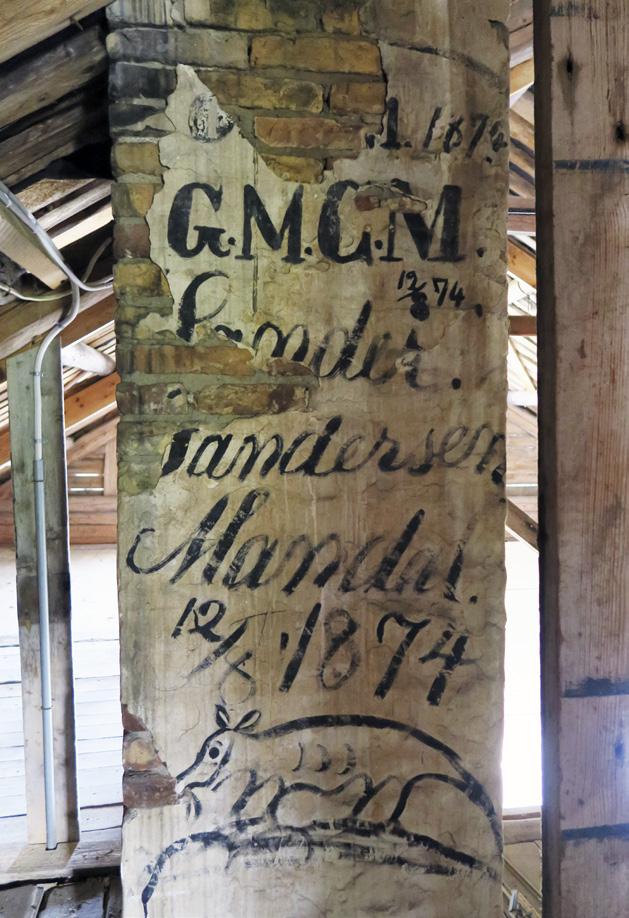 .1.187
G.M.G.M.
12/8 74.
nder.
andersen
Mandal.
12/8 1874